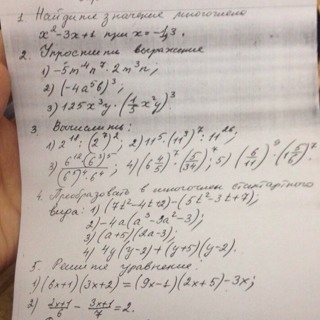 1. Найдите значение многочлена
x² - 3x + 1 при x = -1/3.
2. Упростить выражение
1) -5m⁴n⁷ · 2m³n;
2) (-4a⁵b)³;
3) 125x³y · (1/5 x²y)³
3. Вычислить:
1) 2¹² : (2⁷)²; 2) 11⁵ · (11³)⁷ : 11²⁶;
3) 6¹² · (6³)⁵ / (6⁵)⁴ · 6⁴; 4) (6 4/5)⁷ · (5/34)⁷; 5) (6/11)⁹ · (1 5/6)⁷
4. Преобразовать в многочлен стандартного
вида: 1) (7t² - 4t + 2) - (5t² - 3t + 7);
2) -4a(a³ - 3a² - 3);
3) (a + 5)(2a - 3);
4) 4y(y - 2) + (y + 5)(y - 2).
5. Решите уравнение.
1) (6x + 1)(3x + 2) = (9x - 1)(2x + 5) - 3x;
2) 2x+1/6 - 3x+1/7 = 2.